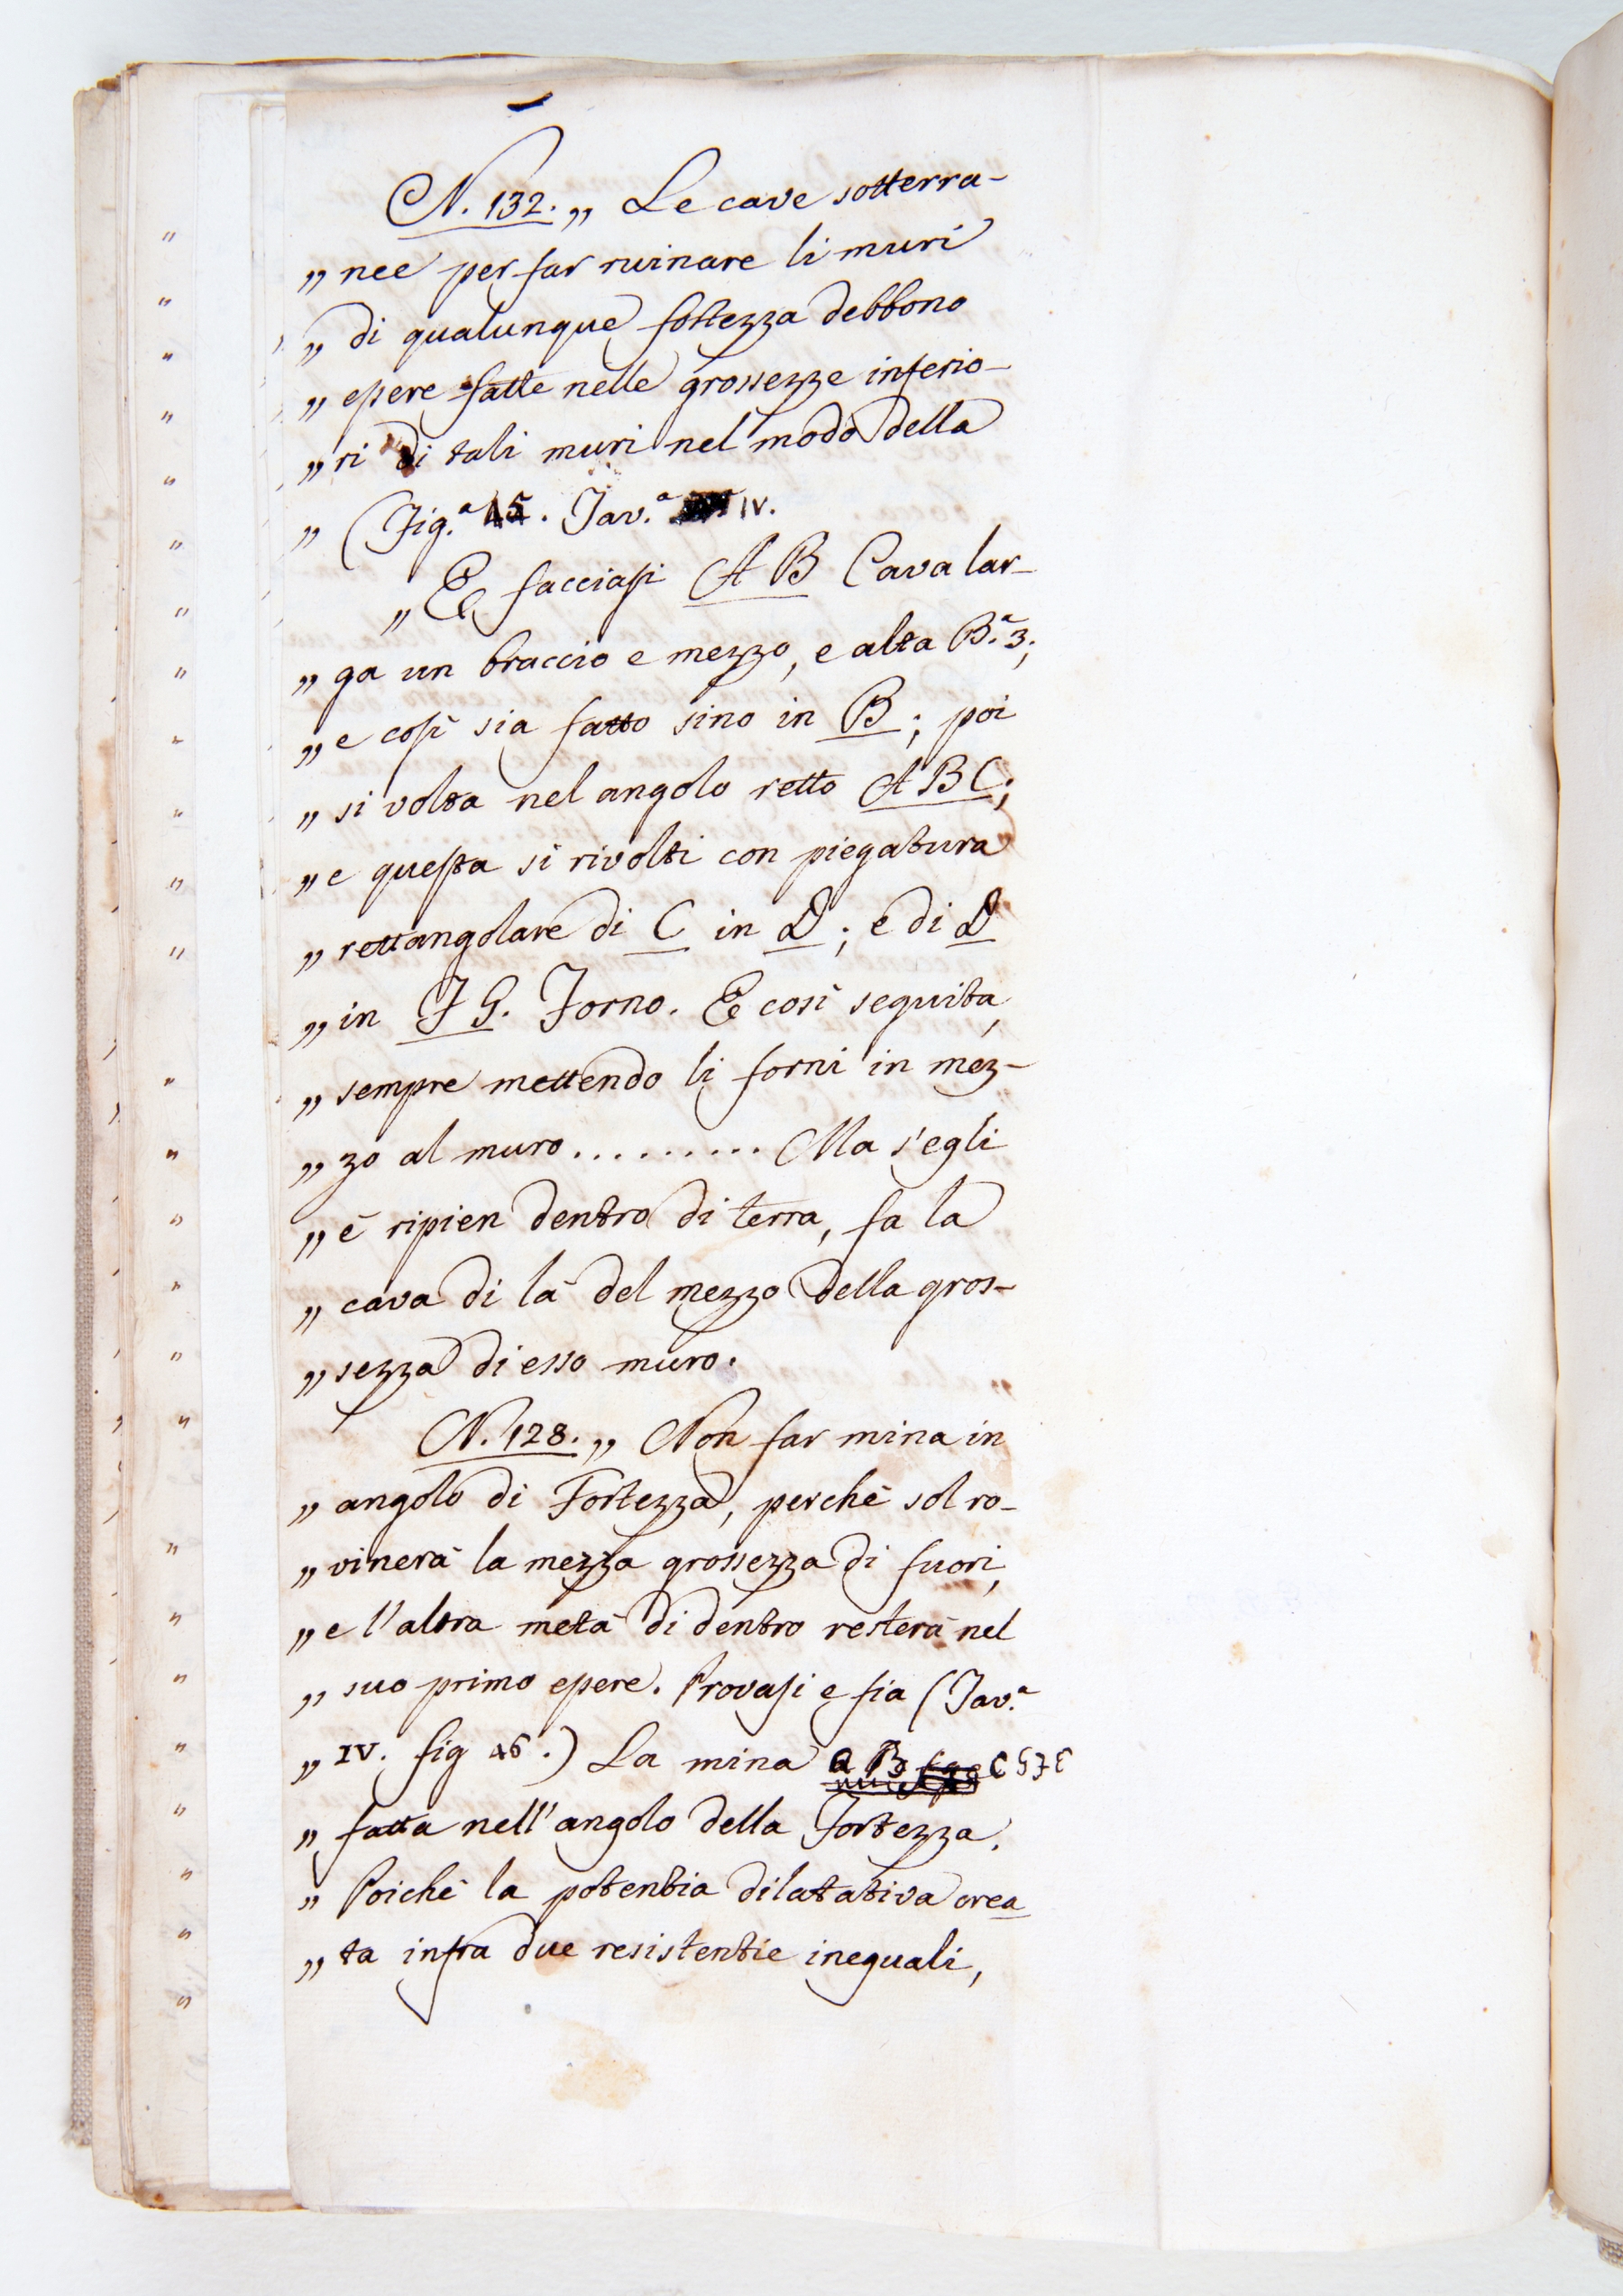 N. 132. „ Le cave sotterra-
„ nee per far ruinare li muri
„ di qualunque fortezza debbono
„ eſsere fatte nelle grossezze inferio-
„ ri di tali muri nel modo della
„ (Fig.ª 45. Tav.ª IV.
„ E facciaſi A B Cava lar-
„ ga un braccio e mezzo, e alta B.ª 3;
„ e coſì sia fatto sino in B; poi
„ si volta nel angolo retto A B C;
„ e queſta si rivolti con piegatura
„ rettangolare di C in D; e di D
„ in F G. Forno. E così seguita,
„ sempre mettendo li forni in mez-
„ zo al muro.......... Ma s'egli
„ è ripien dentro di terra, fa la
„ cava di là del mezzo della gros-
„ sezza di esso muro.
N. 128. „ Non far mina in
„ angolo di Fortezza, perchè sol ro-
„ vinerà la mezza grossezza di fuori,
„ e l'altra metà di dentro resterà nel
„ suo primo eſsere. Provaſi e ſia (Tav.ª
„ IV. fig 46.) La mina a B C
„ fatta nell'angolo della Fortezza.
„ Poichè la potentia dilatativa crea
„ ta infra due resistentie ineguali,